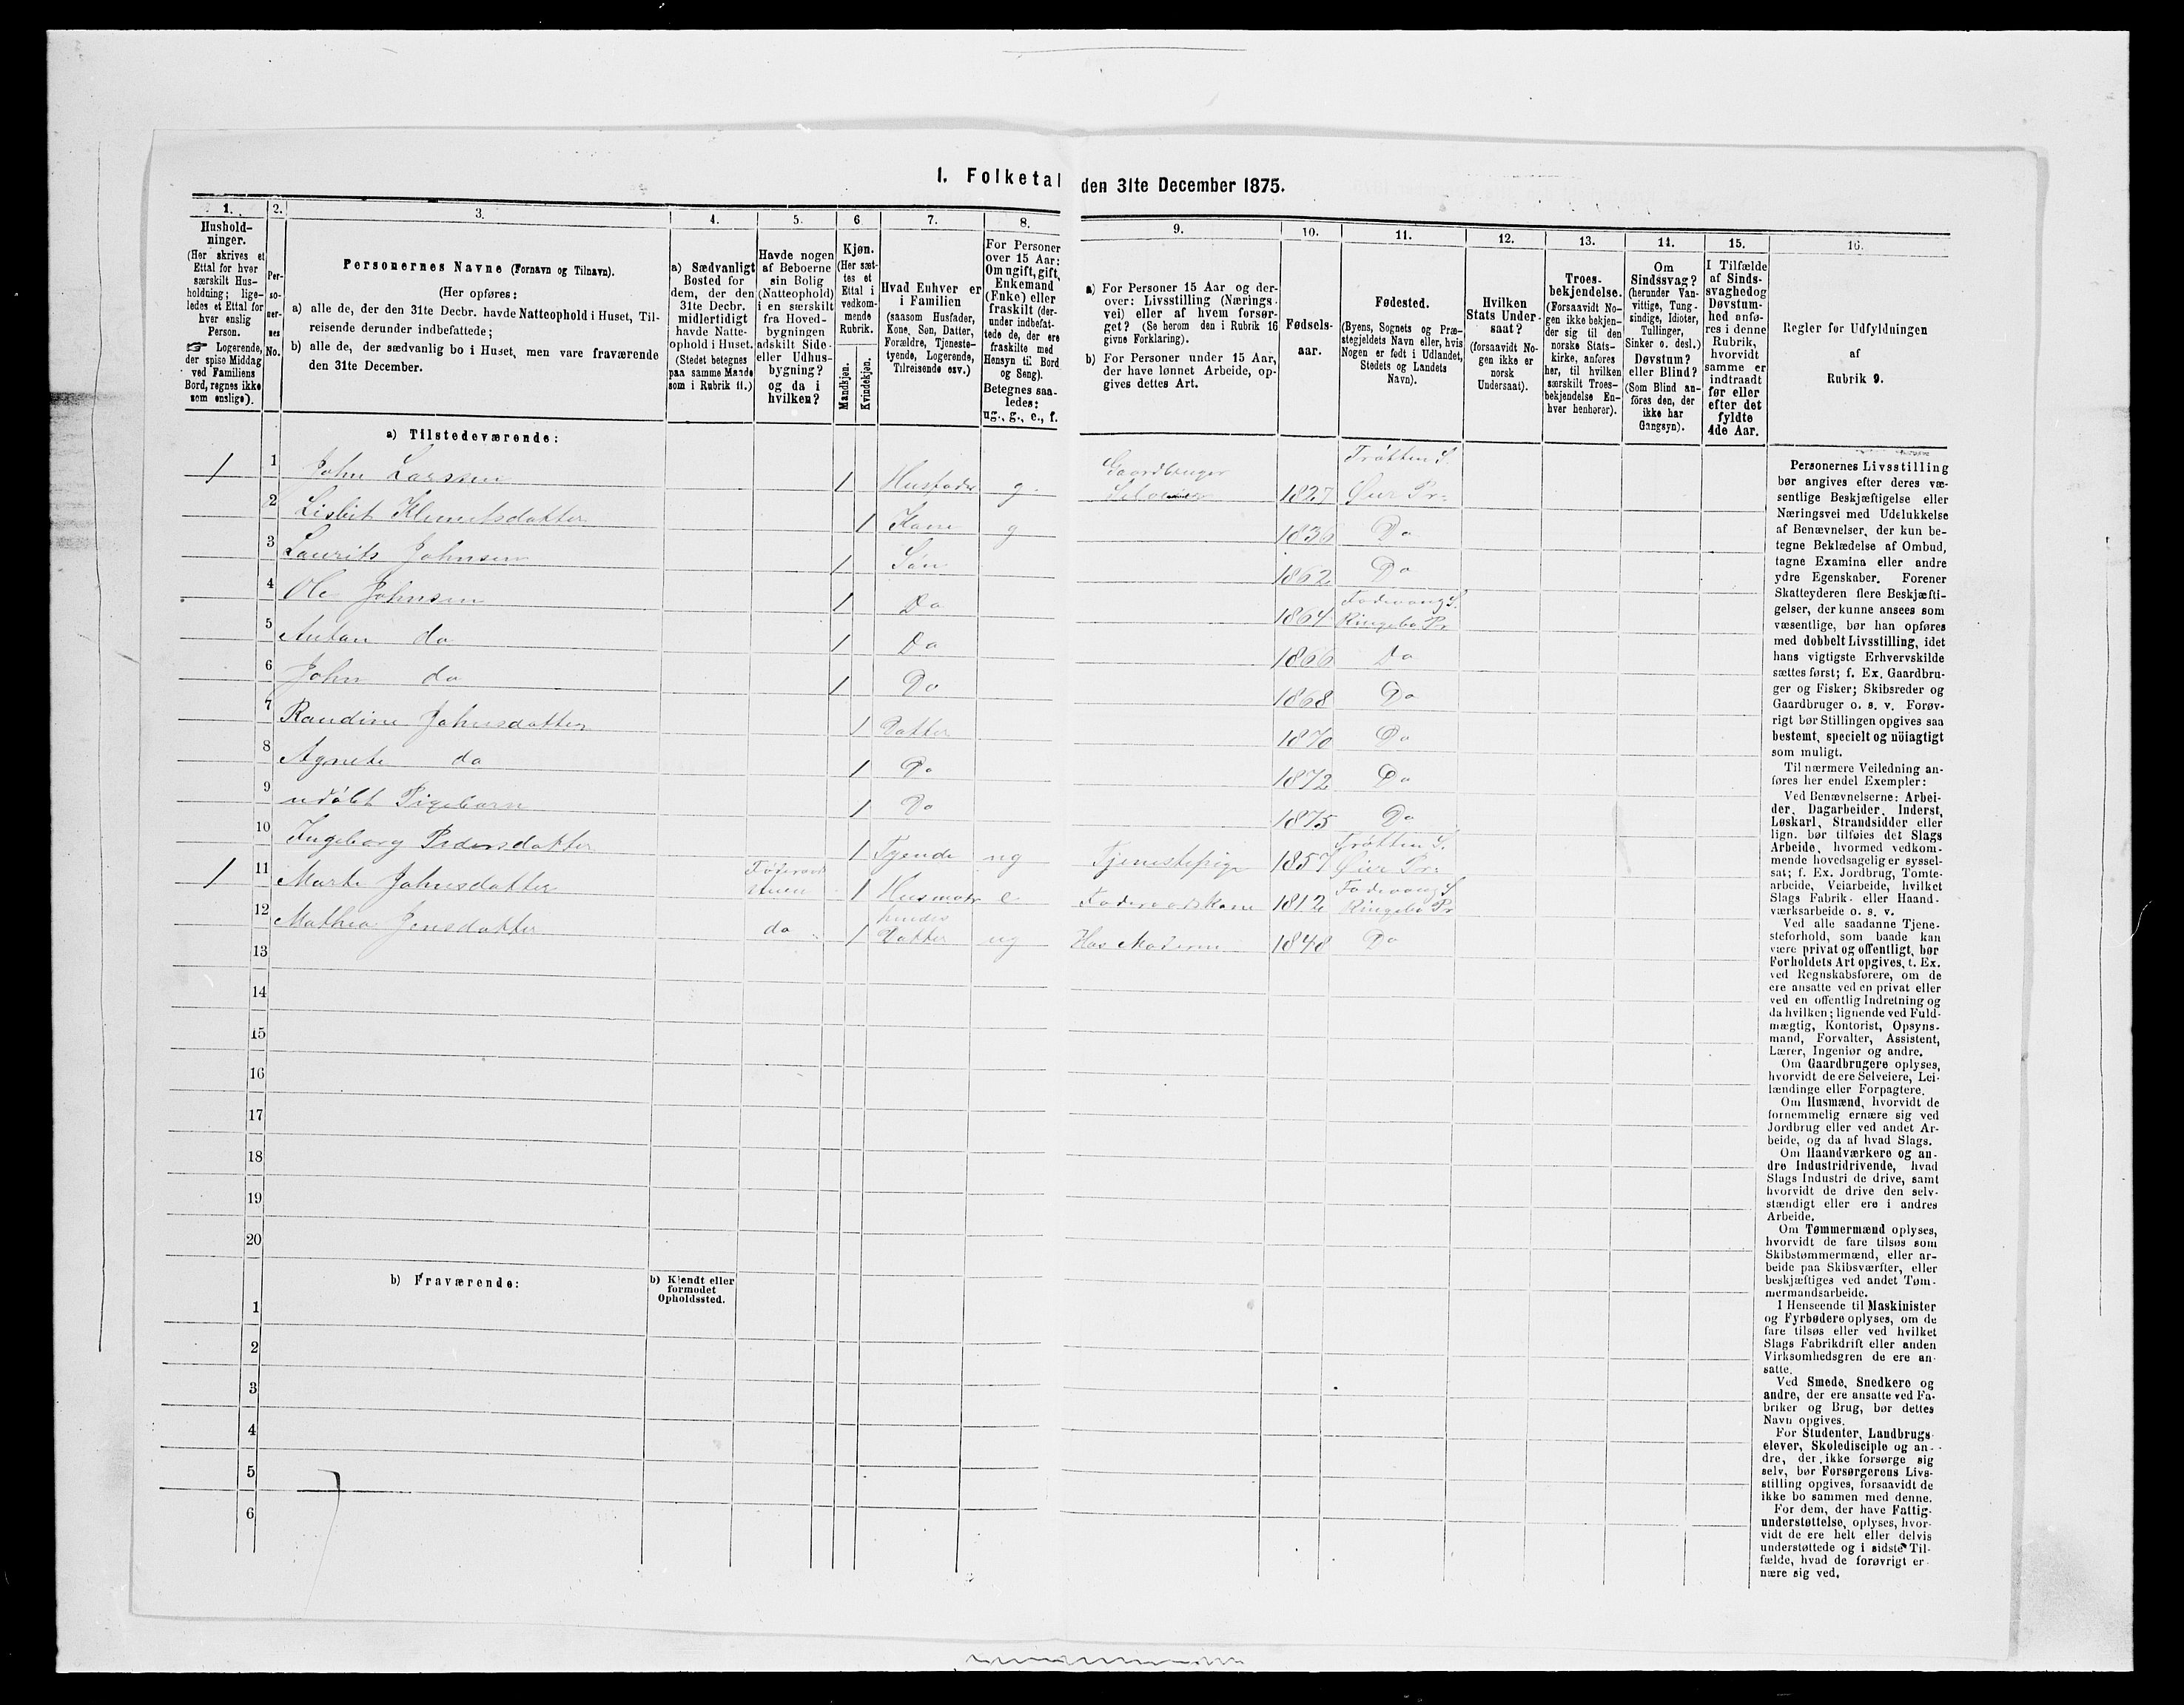 I. Folketal den 31te December 1875.
1.
Hushold-
ninger.
(Her skrives et
Ettal for hver
særskilt Hus-
holdning; lige-
ledes et Ettal for
hver enslig
Person.
☞ Logerende,
der spise Middag
ved Familiens
Bord, regnes ikke
som enslige).
2.
Per-
so-
ner-
nes
No.
3.
Personernes Navne (Fornavn og Tilnavn).
(Her opføres:
a) alle de, der den 31te Decbr. havde Natteophold i Huset, Til-
reisende derunder indbefattede;
b) alle de, der sædvanlig bo i Huset, men vare fraværende
den 31te December.
4.
a) Sædvanligt
Bosted for
dem, der den
31te Decbr.
midlertidigt
havde Natte-
ophold i Huset.
(Stedet betegnes
paa samme Maade
som i Rubrik 11.)
5.
Havde nogen
af Beboerne
sin Bolig
(Natteophold)
i en særskilt
fra Hoved-
bygningen
adskilt Side-
eller Udhus-
bygning?
og da i
hvilken?
6
Kjøn.
(Her sæt-
tes et
Ettal i
vedkom-
mende
Rubrik.
Mandkjøn.
Kvindekjøn.
7.
Hvad Enhver er
i Familien
(saasom Husfader,
Kone, Søn, Datter,
Forældre, Tjeneste-
tyende, Logerende,
Tilreisende osv.)
8.
For Personer
over 15 Aar:
Om ugift, gift,
Enkemand
(Enke) eller
fraskilt (der-
under indbefat-
tede de, der ere
fraskilte med
Hensyn til Bord
og Seng).
Betegnes saa-
ledes:
ug., g., e., f.
9.
a) For Personer 15 Aar og der-
over: Livsstilling (Nærings-
vei) eller af hvem forsør-
get? (Se herom den i Rubrik 16
givne Forklaring).
b) For Personer under 15 Aar,
der have lønnet Arbeide, op-
gives dettes Art.
10.
Fødsels-
aar.
11.
Fødested.
(Byens, Sognets og Præ-
stegjeldets Navn eller, hvis
Nogen er født i Udlandet,
Stedets og Landets
Navn).
12.
Hvilken
Stats Under-
saat?
(forsaavidt No-
gen ikke er
norsk
Undersaat).
13.
Troes-
bekjendelse.
(Forsaavidt No-
gen ikke bekjen-
der sig til den
norske Stats-
kirke, anføres
her, til hvilken
særskilt Troes-
bekjendelse En-
hver henhører).
14.
Om
Sindssvag?
(herunder Van-
vittige, Tung-
sindige, Idioter,
Tullinger,
Sinker o. desl.)
Døvstum?
eller Blind?
(Som Blind an-
føres den, der
ikke har
Gangsyn).
15.
I Tilfælde
af Sinds-
svaghed og
Døvstum-
hed anfø-
res i denne
Rubrik,
hvorvidt
samme er
indtraadt
før eller
efter det
fyldte
4de Aar.
16.
Regler for Udfyldningen
af
Rubrik 9.
a) Tilstedeværende:
Gaardbruger Trøtten S.
1 1 John Larssen 1 Husfader g. Selveier 1827 Øier Pr:
2 Lisbit Klemetsdatter 1 Kone g 1836 Do
3 Laurits Johnsen 1 Søn 1862 Do
Fodevang S.
4 Ole Johnsen 1 Do 1864 Ringebo Pr
5 Antan do 1 Do 1866 Do
6 John do 1 Do 1868 Do
7 Randine Johnsdatter 1 Datter 1870 Do
8 Agnete do 1 Do 1872 Do
9 udøbt Pigebarn 1 Do 1875 Do
Trøtten S.
10 Ingeborg Pedersdatter 1 Tyende ug Tjenestepige 1857 Øier Pr:
Føderaad Fodevang S
1 11 Marte Johnsdatter stuen 1 Husmoder e Foderaadskone 1812 Ringebo Pr
hendes
12 Mathea Jensdatter do 1 Datter ug Hos Moderen 1848 Do
13
14
15
16
17
18
19
20
b) Fraværende:
b) Kjendt eller
formodet
Opholdssted.
1
2
3
4
5
6
Personernes Livsstilling
bør angives efter deres væ-
sentlige Beskjæftigelse eller
Næringsvei med Udelukkelse
af Benævnelser, der kun be-
tegne Beklædelse af Ombud,
tagne Examina eller andre
ydre Egenskaber. Forener
Skatteyderen flere Beskjæfti-
gelser, der kunne ansees som
væsentlige, bør han opføres
med dobbelt Livsstilling, idet
hans vigtigste Erhvervskilde
sættes først; f. Ex. Gaardbru-
ger og Fisker; Skibsreder og
Gaardbruger o. s. v. Forøv-
rigt bør Stillingen opgives saa
bestemt, specielt og nöiagtigt
som muligt.
Til nærmere Veiledning an-
føres her endel Exempler:
Ved Benævnelserne: Arbei-
der, Dagarbeider, Inderst,
Løskarl, Strandsidder eller
lign. bør tilføies det Slags
Arbeide, hvormed vedkom-
mende hovedsagelig er syssel-
sat; f. Ex. Jordbrug, Tomte-
arbeide, Veiarbeide, hvilket
Slags Fabrik- eller Haand-
værksarbeide o. s. v.
Ved alle saadanne Tjene-
steforhold, som baade kan
være privat og offentligt, bør
Forholdets Art opgives, t. Ex.
ved Regnskabsførere, om de
ere ansatte ved en privat eller
ved en offentlig Indretning og
da hvilken; lignende ved Fuld-
mægtig, Kontorist, Opsyns-
mand, Forvalter, Assistent,
Lærer, Ingeniør og andre.
Om Gaardbrugere oplyses,
hvorvidt de ere Selveiere, Lei-
lændinge eller Forpagtere.
Om Husmænd, hvorvidt de
fornemmelig ernære sig ved
Jordbrug eller ved andet Ar-
beide, og da af hvad Slags.
Om Haandværkere og an-
dre Industridrivende, hvad
Slags Industri de drive, samt
hvorvidt de drive den selv-
stændigt eller ere i andres
Arbeide.
Om Tømmermænd oplyses,
hvorvidt de fare tilsøs som
Skibstømmermænd, eller ar-
beide paa Skibsværfter, eller
beskjæftiges ved andet Tøm-
mermandsarbeide.
I Henseende til Maskinister
og Fyrbødere oplyses, om de
fare tilsøs eller ved hvilket
Slags Fabrikdrift eller anden
Virksomhedsgren de ere an-
satte.
Ved Smede, Snedkere og
andre, der ere ansatte ved Fa-
briker og Brug, bør dettes
Navn opgives.
For Studenter, Landbrugs-
elever, Skoledisciple og an-
dre, der ikke forsørge sig
selv, bør Forsørgerens Livs-
stilling opgives, forsaavidt de
ikke bo sammen med denne.
For dem, der have Fattig-
understøttelse, oplyses, hvor-
vidt de ere helt eller delvis
understøttede og i sidste Til-
fælde, hvad de forøvrigt er-
nære sig ved.